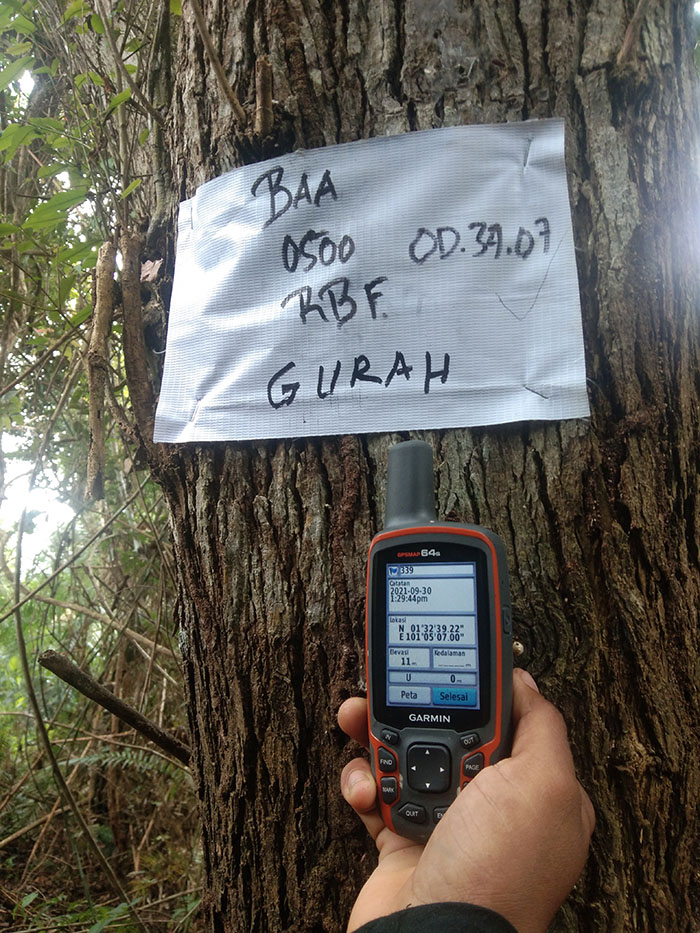 BAA
0500 OD.37.07
RBF.
GURAH
GPSMAP 64s
339
Catatan
2021-09-30
1:29:44pm
Lokasi
N 01°32'39.22"
E 101°05'07.00"
Elevasi Kedalaman
11 m
U 0 m
Peta Selesai
GARMIN
IN OUT
FIND PAGE
MARK
QUIT